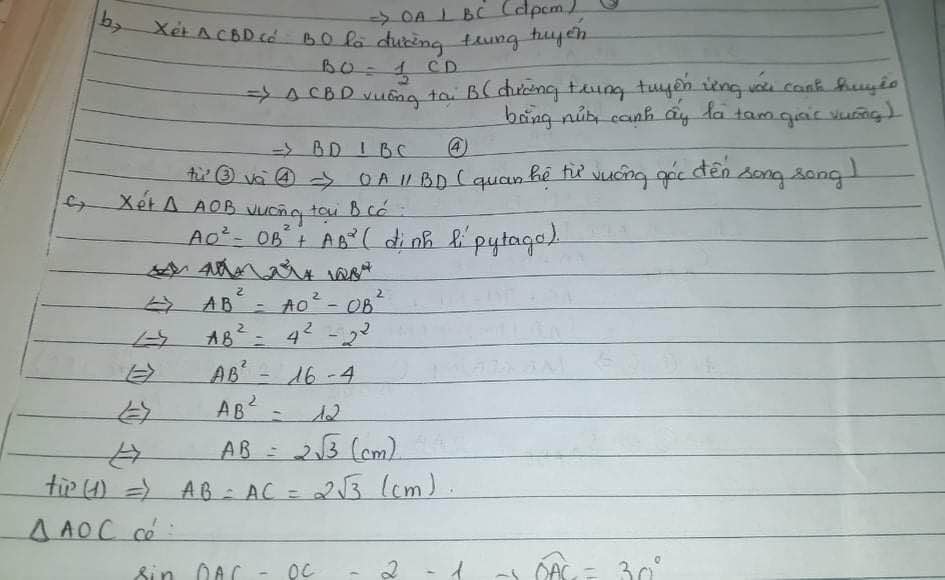 => OA ⊥ BC (đpcm) ③
b, Xét Δ CBD có: BO là đường trung tuyến
BO = 1/2 CD
=> Δ CBD vuông tại B (đường trung tuyến ứng với cạnh huyền
bằng nửa cạnh ấy là tam giác vuông)
=> BD ⊥ BC ④
từ ③ và ④ => OA // BD (quan hệ từ vuông góc đến song song)
c, Xét Δ AOB vuông tại B có:
AO² = OB² + AB² (định lí pytago).
<=> AB² = AO² - OB²
<=> AB² = 4² - 2²
<=> AB² = 16 - 4
<=> AB² = 12
<=> AB = 2√3 (cm)
từ (1) => AB = AC = 2√3 (cm).
Δ AOC có:
sin OAC = OC = 2 = 1 => OAC = 30°